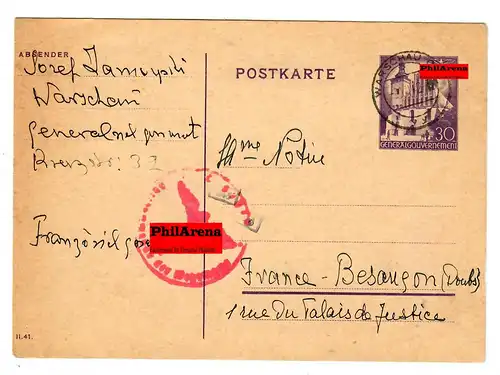 ABSENDER
Josef Zamoyski
Warschau
Generalgouvernement
Kreuzstr. 32
Französisch
POSTKARTE
WARSCHAU
PhilArena
30
GENERALGOUVERNEMENT
Mme Notire
PhilArena
France-Besançon (Doubs)
1 rue du Palais de Justice
II.41.